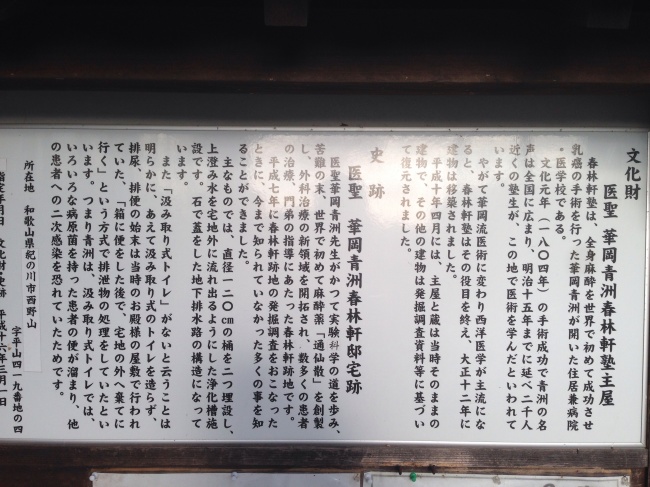 文化財
医聖 華岡青洲春林軒塾主屋
春林軒塾は、全身麻酔を世界で初めて成功させ
乳癌の手術を行った華岡青洲が開いた住居兼病院
・医学校である。
文化元年（一八〇四年）の手術成功で青洲の名
声は全国に広まり、明治十五年までに延べ二千人
近くの塾生が、この地で医術を学んだといわれて
います。
やがて華岡流医術に変わり西洋医学が主流にな
ると、春林軒塾はその役目を終え、大正十二年に
建物は移築されました。
平成十年四月には、主屋と蔵は当時そのままの
建物で、その他の建物は発掘調査資料等に基づい
て復元されました。
史跡
医聖 華岡青洲春林軒邸宅跡
医聖華岡青洲先生がかつて実験科学の道を歩み、
苦難の末、世界で初めて麻酔薬「通仙散」を創製
し、外科治療の新領域を開拓され、数多くの患者
の治療、門弟の指導にあたった春林軒跡地です。
平成七年に春林軒跡地の発掘調査をおこなった
ときに、今まで知られていなかった多くの事を知
ることができました。
主なものでは、直径一二〇㎝の桶を二つ埋設し、
上澄み水を宅地外に流れ出るようにした浄化槽施
設です。石で蓋をした地下排水路の構造になって
います。
また「汲み取り式トイレ」がないと云うことは
明らかに、あえて汲み取り式のトイレを造らず、
排尿、排便の始末は当時のお殿様の屋敷で行われ
ていた、「箱に便をした後で、宅地の外へ棄てに
行く」という方式で排泄物の処理をしていたとい
います。つまり青洲は、汲み取り式トイレでは、
いろいろな病原菌を持った患者の便が溜まり、他
の患者への二次感染を恐れていたためです。
所在地 和歌山県紀の川市西野山
字平山四一九番地の四
指定年月日 文化財史跡 平成十六年三月一日